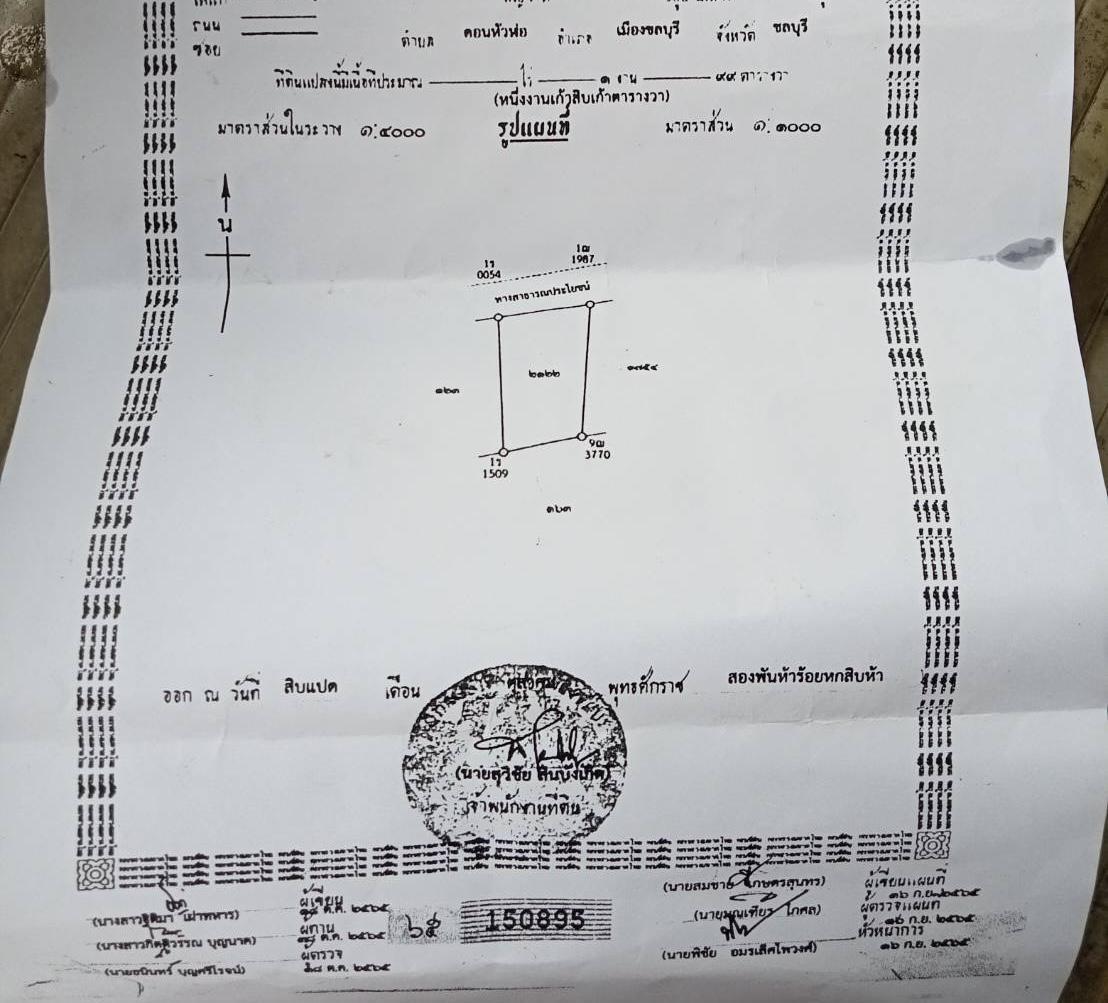 ถนน
ซอย
ตำบล ดอนหัวฬ่อ อำเภอ เมืองชลบุรี จังหวัด ชลบุรี
ที่ดินแปลงนี้มีเนื้อที่ประมาณ ไร่ ๑ งาน ๙๙ ตารางวา
(หนึ่งงานเก้าสิบเก้าตารางวา)
มาตราส่วนในระวาง ๑:๔๐๐๐ รูปแผนที่ มาตราส่วน ๑:๑๐๐๐
น
1ร 0054
1ฒ 1987
ทางสาธารณประโยชน์
๒๑๒๒
๑๒๓
1ร 1509
9ฒ 3770
๑๖๓
ออก ณ วันที่ สิบแปด เดือน ตุลาคม พุทธศักราช สองพันห้าร้อยหกสิบห้า
(นายสุวิชัย สินบังเกิด)
เจ้าพนักงานที่ดิน
ผู้เขียน
๑๘ ต.ค. ๒๕๖๕
ผู้ทาน
๑๘ ต.ค. ๒๕๖๕
(นางสาวกิตติวรรณ บุญนาค)
ผู้ตรวจ
๑๘ ต.ค. ๒๕๖๕
๖๕ 150895
(นายสมชาย เกษตรสุนทร) ผู้เขียนแผนที่
๑๖ ก.ย. ๒๕๖๕
(นายบุญเทียร โกศล) ผู้ตรวจแผนที่
๑๖ ก.ย. ๒๕๖๕
(นายพิชัย อมรเลิศไพวงศ์) หัวหน้าการ
๑๖ ก.ย. ๒๕๖๕